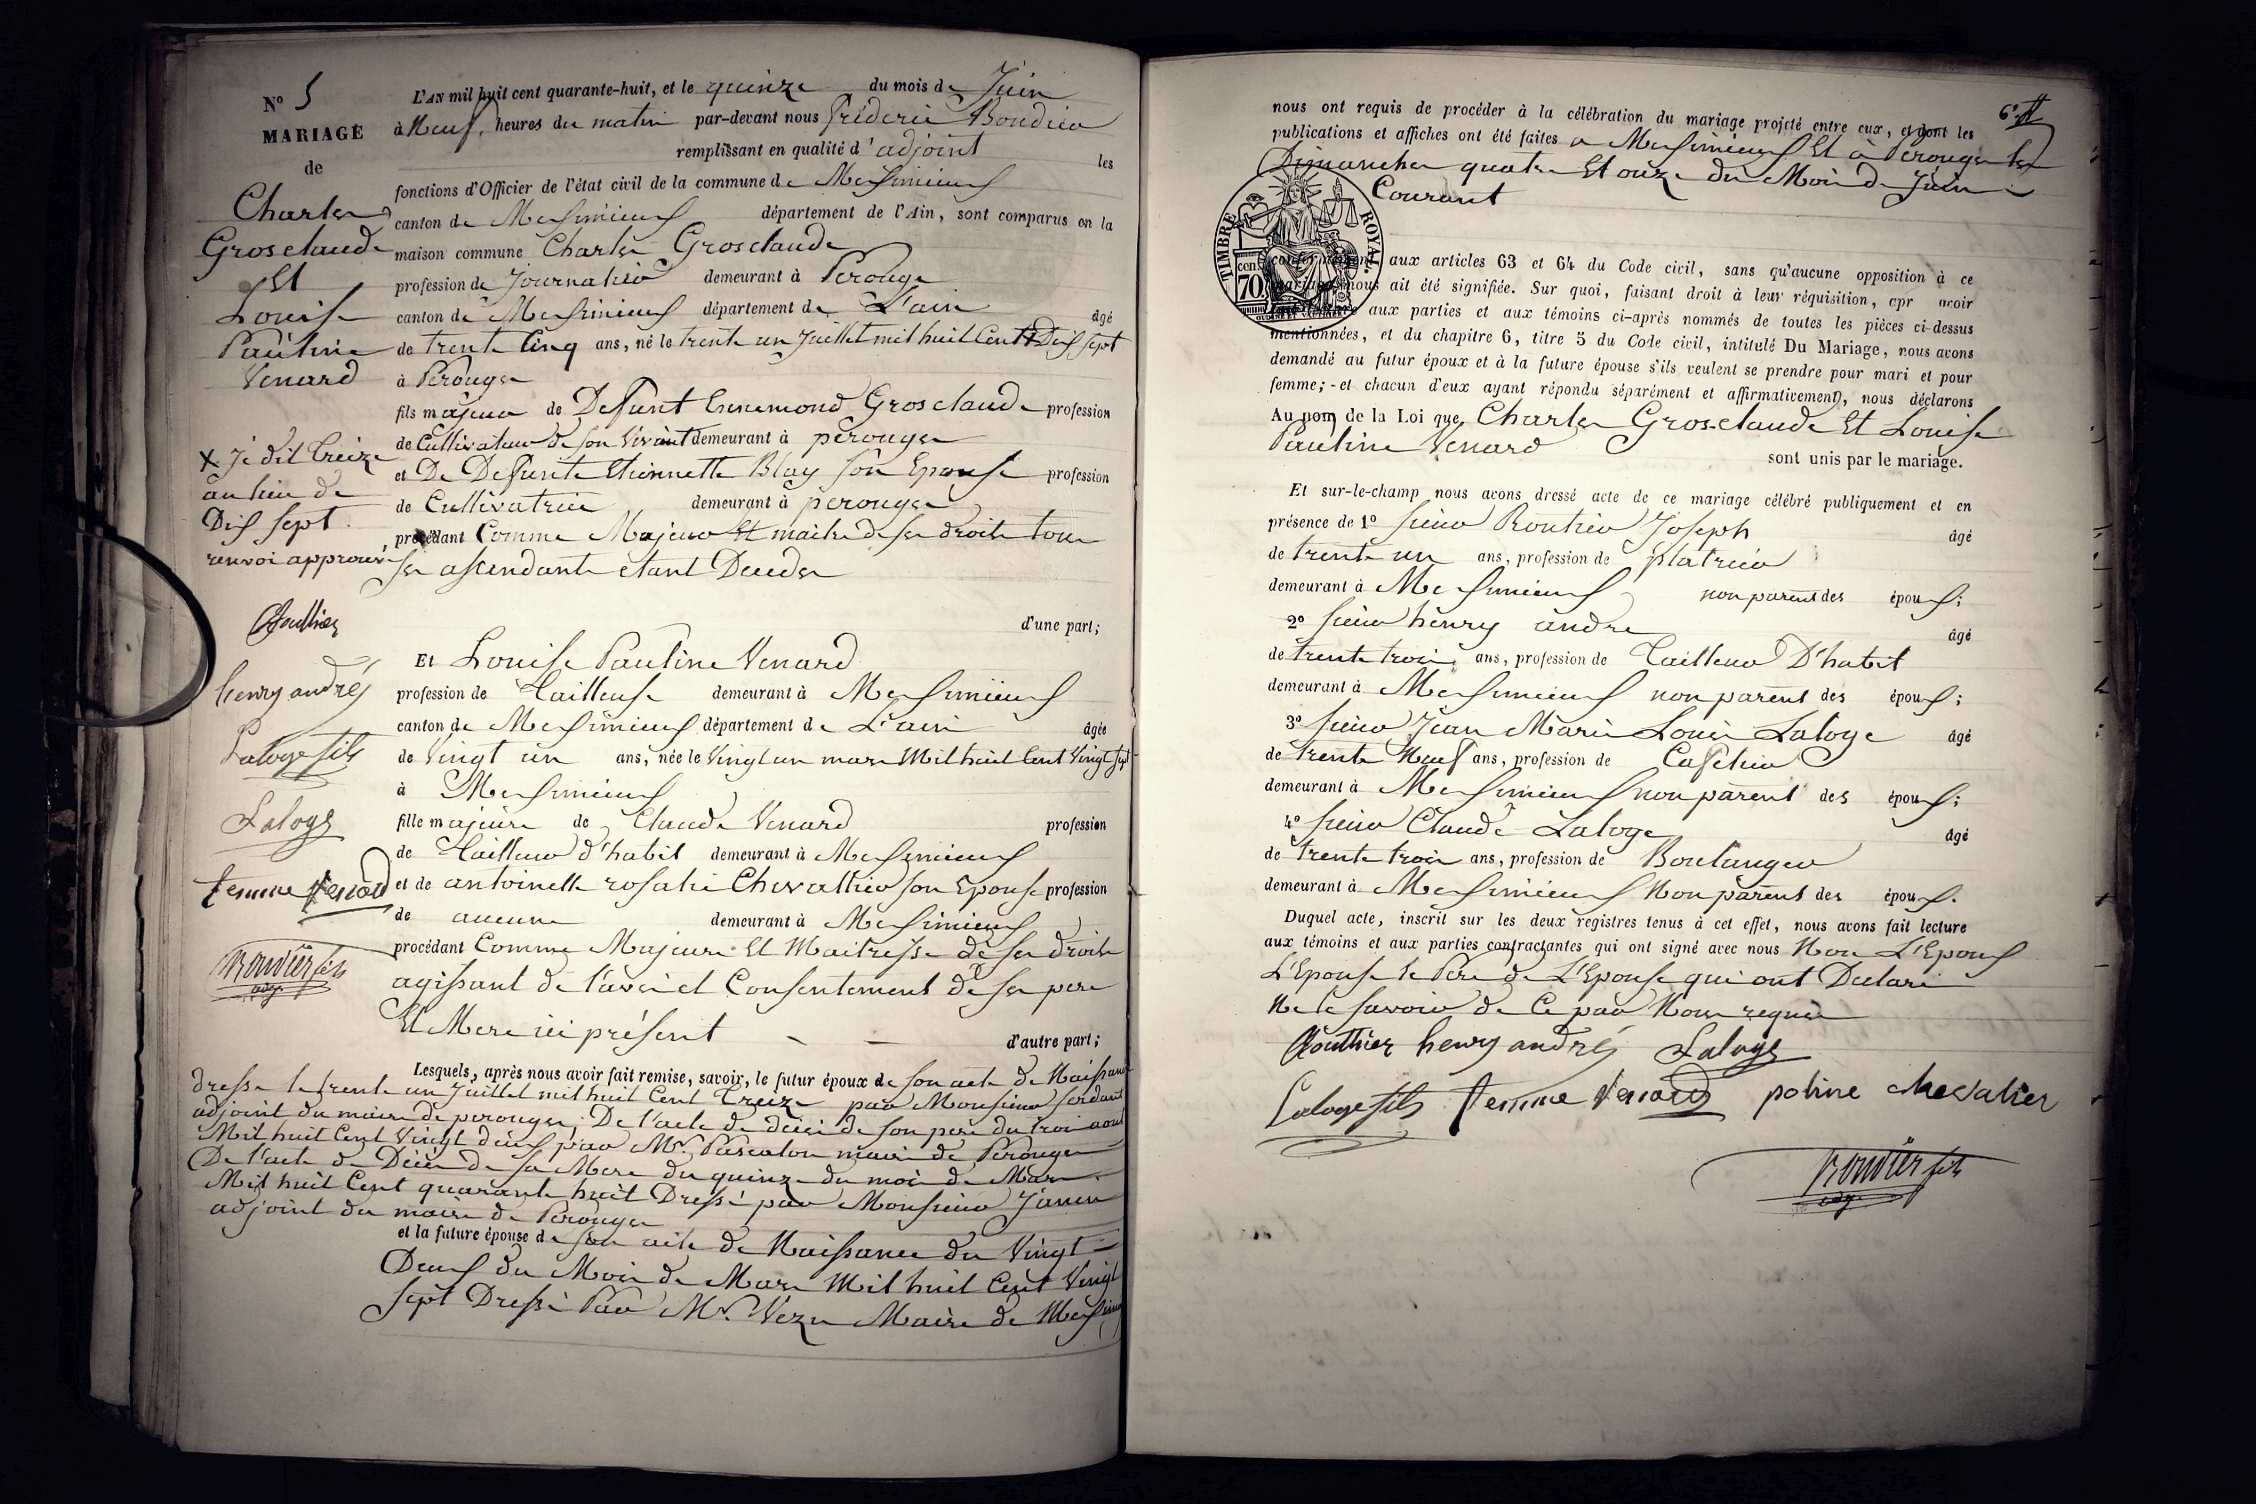 N° 5
MARIAGE
de
Charles
Grosclaude
Et
Louise
Pauline
Venard
X Je dit treize
au lieu de
Dix sept
renvoi approuvé
henry andré
Laloge fils
Laloge
femme venard
adj.
L'AN mil huit cent quarante-huit, et le quinze du mois de Juin
à Neuf heures du matin par-devant nous fréderic
remplissant en qualité d'adjoint les
fonctions d'Officier de l'état civil de la commune de Meximieux
canton de Meximieux département de l'Ain, sont comparus en la
maison commune Charles Grosclaude
profession de Journalier demeurant à Perouge
canton de Meximieux département de L'ain âgé
de trente Cinq ans, né le trente un Juillet mil huit Cent X Dix sept
à Perouges
fils majeur de Defunt Ennemond Grosclaude profession
de Cultivateur de son Vivant demeurant à perouges
et De Defunte Etiennette Blay son Epouse profession
de Cultivatrice demeurant à perouges
procédant Comme Majeur Et maitre de ses droits tous
ses ascendants étant Decedes
d'une part;
Et Louise Pauline Venard
profession de Tailleuse demeurant à Meximieux
canton de Meximieux département de L'ain âgée
de Vingt un ans, née le Vingt un mars Mil huit Cent Vingt sept
à Meximieux
fille majeure de Claude Venard profession
de Tailleur d'habit demeurant à Meximieux
et de antoinette rosalie Chevallier son Epouse profession
de aucune demeurant à Meximieux
procédant Comme Majeure Et Maitresse de ses droits
agissant de l'avis et Consentement de ses pere
Et Mere ici présent
d'autre part;
Lesquels, après nous avoir fait remise, savoir, le futur époux de son acte de Naissance
dresse le trente un Juillet mil huit Cent treize par Monsieur Jordant
adjoint du maire de perouges; De l'acte de décès de son pere du trois aout
Mil huit Cent Vingt deux par Mr. Pascalon maire de Perouges
De l'acte de Décès de sa Mere du quinze du mois de Mars
Mil huit Cent quarante huit Dressé par Monsieur Janin
adjoint du maire de Perouges
et la future épouse de son acte de Naissance du Vingt
Deux du Mois de Mars Mil huit Cent Vingt
sept Dressé Par Mr. Vezu Maire de Meximieux
6e
nous ont requis de procéder à la célébration du mariage projeté entre eux, et dont les
publications et affiches ont été faites a Meximieux Et à Perouges les
Dimanches quatre Et onze du Mois de Juin
Courant
TIMBRE ROYAL
70 cen.
conformément aux articles 63 et 64 du Code civil, sans qu'aucune opposition à ce
mariage nous ait été signifiée. Sur quoi, faisant droit à leur réquisition, apr avoir
aux parties et aux témoins ci-après nommés de toutes les pièces ci-dessus
mentionnées, et du chapitre 6, titre 5 du Code civil, intitulé Du Mariage, nous avons
demandé au futur époux et à la future épouse s'ils veulent se prendre pour mari et pour
femme; - et chacun d'eux ayant répondu séparément et affirmativement, nous déclarons
Au nom de la Loi que Charles Grosclaude Et Louise
Pauline Venard
sont unis par le mariage.
Et sur-le-champ nous avons dressé acte de ce mariage célébré publiquement et en
présence de 1° sieur Joseph âgé
de trente un ans, profession de platrier
demeurant à Meximieux non parent des époux;
2° sieur henry andre âgé
de trente trois ans, profession de Tailleur D'habit
demeurant à Meximieux non parent des époux;
3° sieur Jean Marie Louis Laloge âgé
de trente Neuf ans, profession de Cafetier
demeurant à Meximieux non parent des époux;
4° sieur Claude Laloge âgé
de trente trois ans, profession de Boulanger
demeurant à Meximieux Non parent des époux.
Duquel acte, inscrit sur les deux registres tenus à cet effet, nous avons fait lecture
aux témoins et aux parties contractantes qui ont signé avec nous Non L'Epoux
L'Epouse le Pere de L'Epouse qui ont Declaré
Ne le savoir de Ce par Nous requis
henry andré Laloge
Laloge fils femme venard poline chevalier
adj.